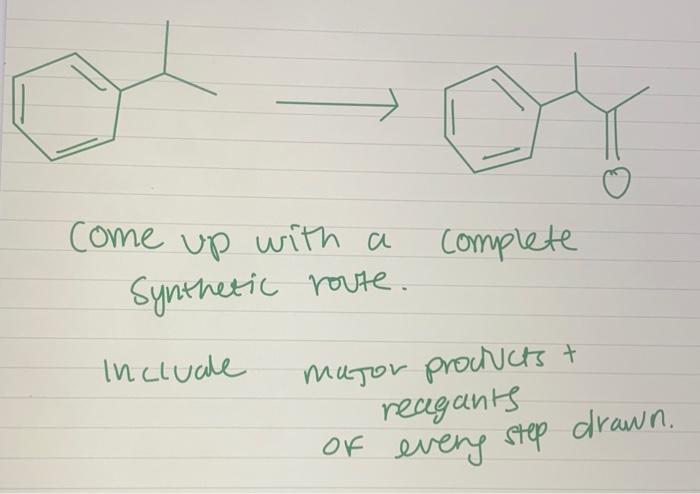 O
Come up with a complete
Synthetic route.
Include major products +
reagants
of every step drawn.